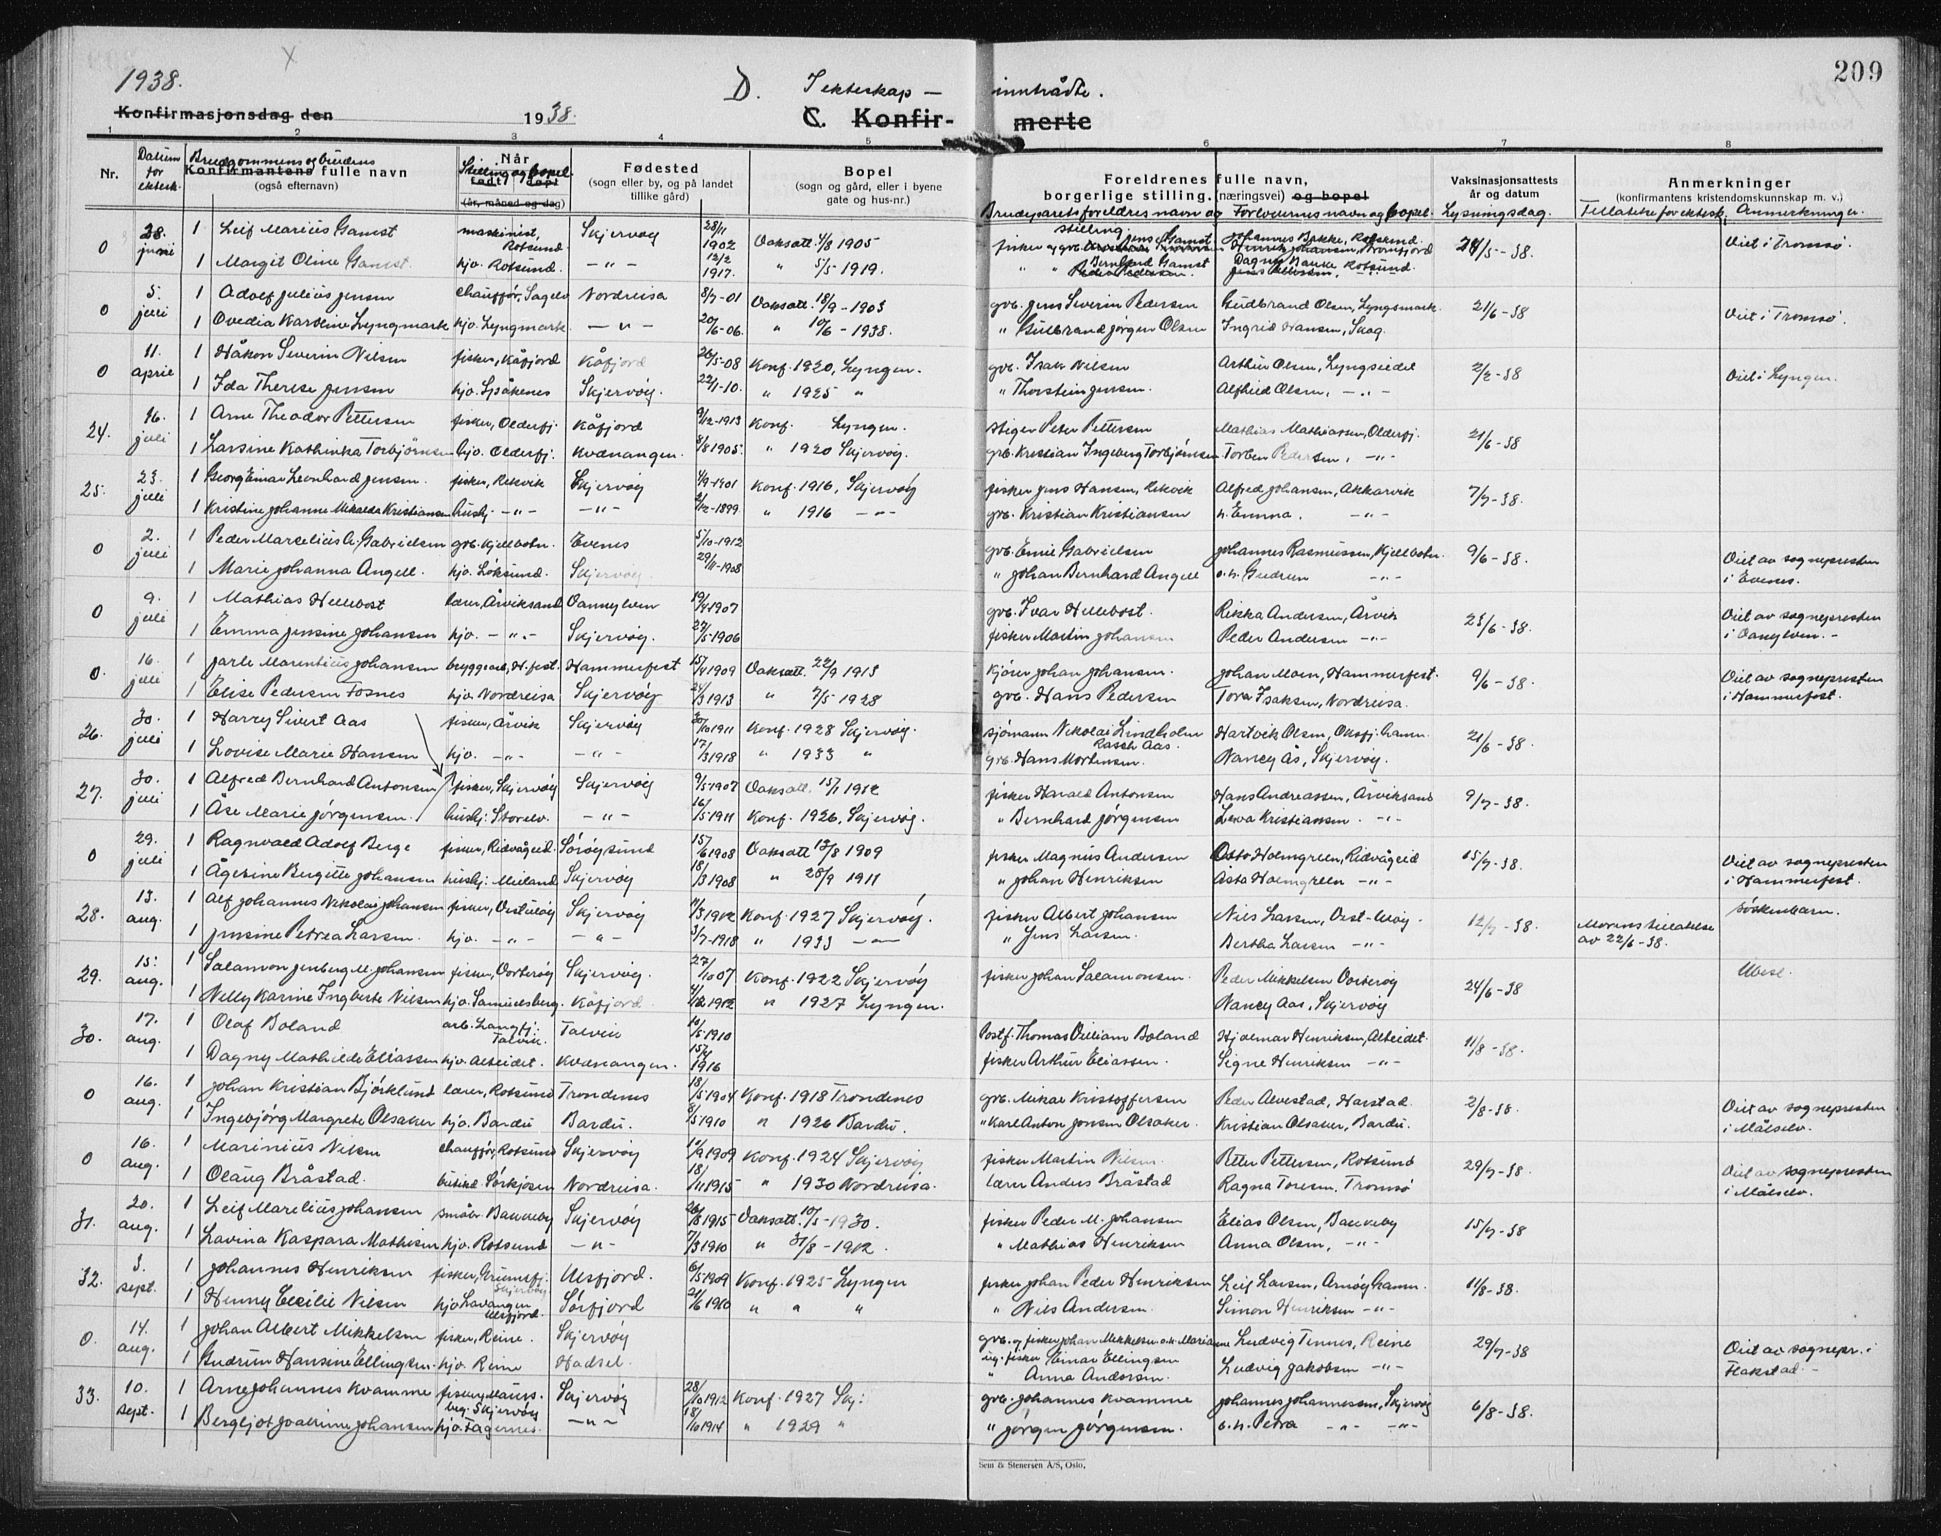 1938.
D. I ekteskap — inntrådte.
209
Konfirmasjonsdag den 1938.
C. Konfirmerte
1 2 3 4 5 6 7 8
Nr. Datum for ektesk. Brudgommens og brudens Konfirmantens fulle navn (også efternavn)
Når født døpt (år, måned og dag) Stilling og bopel.
Fødested (sogn eller by, og på landet tillike gård)
Bopel (sogn og gård, eller i byene gate og hus-nr.)
Foreldrenes fulle navn, borgerlige stilling. (næringsvei) og bopel
Brudeparets foreldres navn og stilling. Forlovernes navn og bopel.
Vaksinasjonsattests år og datum Lysningsdag.
Anmerkninger (konfirmantens kristendomskunnskap m. v.) Tillatelse for ektesk. Anmerkninger.
0 28. juni 1 Leif Marius Gamst maskinist, Rotsund Skjervøy 28/11 1902 Vaksatt. 1/8 1905 fisker og gvb. Jens Gamst Johannes Bakke, Rotsund 28/5-38. Viet i Tromsø.
1 Margit Oline Gamst. hjv. Rotsund. —"— 12/2 1917. " 5/5 1919. " " Bernhard Gamst Dagny Bakke, Rotsund.
0 5. juli 1 Adolf Julius Jensen chauffør, Sagelv Nordreisa 8/7-01 Vaksatt. 18/9-1903 gvb. Jens Severin Pedersen Gudbrand Olsen, Lyngsmark. 21/6-38 Viet i Tromsø.
1 Ovedia Karoline Lyngmark hjv. Lyngmark —"— 20/6-06. " 10/6-1938. " Gulbrand Jørgen Olsen Ingrid Hansen, Skog.
0 11. april 1 Håkon Severin Nilsen fisker, Kåfjord Kåfjord 26/5-08 Konf. 1920, Lyngen. gvb. Isak Nilsen Arthur Olsen, Lyngseidet 2/2-38 Viet i Lyngen.
1 Ida Therese Jensen hjv. Spåkenes Skjervøy. 22/1-10. " 1925 " " Thorstein Jensen. Alfhild Olsen, —"—
24. 16. juli 1 Arne Theodor Pettersen fisker, Olderfj. Kåfjord 9/12-1913 Konf. Lyngen. stiger Peter Pettersen Mathias Mathiassen, Olderfj. 21/6-38
1 Larsine Kathinka Torbjørnsen hjv. Olderfj. Kvænangen. 8/8 1905. " 1920 Skjervøy. gvb. Kristian Ingeberg Torbjørnsen Torben Pedersen, —"—
25. 23. juli 1 Georg Einar Leonhard Jensen. fisker, Rekvik Skjervøy 4/9-1901 Konf. 1916, Skjervøy fisker Jens Hansen, Rekvik Alfred Johansen, Akkarvik 7/7-38.
1 Kristine Johanne Mikalda Kristiansen hushj. —"— —"— 2/12-1899. " 1916 —"— gvb. Kristian Kristiansen h. Emma. —"—
0 2. juli 1 Peder Marselius A. Gabrielsen gvb. Kjellbotn. Evenes 5/10-1912 gvb. Emil Gabrielsen Johannes Rasmussen, Kjellbotn. 9/6-38. Viet av sognepresten i Evenes.
1 Marie Johanna Angell. hjv. Løksund. Skjervøy. 29/11-1908 " Johan Bernhard Angell o.h. Gudrun —"—
0 9. juli 1 Mathias Hellebost lærer, Årviksand Vannylven 19/4 1907 gvb. Ivar Hellebost. Rikka Andersen, Årvik 23/6-38. Viet av sognepresten i Vannylven. -
1 Emma Jensine Johansen hjv. —"— Skjervøy. 27/5-1906 fisker Martin Johansen Peder Andersen —"—
0. 16. juli 1 Jarle Marentius Johansen bryggearb, H.fest. Hammerfest 15/4 1909 Vaksatt. 22/9 1913 Kjører Johan Johansen. Johan Moen, Hammerfest. 9/6-38. Viet av sognepresten i Hammerfest.
1 Elise Pedersen Fosnes hjv. Nordreisa Skjervøy 24/9 1913 " 7/5 1928 gvb. Hans Pedersen Tora Isaksen, Nordreisa.
26. 30. juli 1 Harry Sivert Aas fisker, Årvik Skjervøy 30/10 1911 Konf. 1928 Skjervøy. sjømann Nikolai Lindholm Rasch Aas. Hartvik Olsen, Oksfj. hamn. 21/6-38.
1 Lovise Marie Hansen hjv. —"— —"— 17/3 1918 " 1933 " gvb. Hans Mortensen. Nancy Ås, Skjervøy.
27. 30. juli 1 Alfred Bernhard Antonsen fisker, Skjervøy Skjervøy 9/5-1907 Vaksatt. 15/7 1912 fisker Harald Antonsen Hans Andreassen, Årviksand 9/7-38.
1 Åse Marie Jørgensen. hushj. Storelv. —"— 16/5-1911 Konf. 1926, Skjervøy. " Bernhard Jørgensen Leva Kristiansen. —"—
0 29. juli 1 Ragnvald Adolf Berge fisker, Ridvågeid. Sørøysund 15/6 1908 Vaksatt 13/8 1909 fisker Magnus Andersen Otto Holmgreen, Ridvågeid 15/7-38. Viet av sognepresten i Hammerfest.
1 Ågesine Bergitte Johansen hushj. Mieland Skjervøy 18/3 1908 " 28/9 1911 " Johan Henriksen Asta Holmgreen —"—
28. 13. aug. 1 Alf Johannes Nikolai Johansen fisker, Vestuløy Skjervøy 14/3 1912 Konf. 1927 Skjervøy. fisker Albert Johansen Nils Larsen, Vest-Uløy 12/7-38. Morens tillatelse av 22/6-38. Søskenbarn.
1 Jensine Petrea Larsen. hjv. —"— —"— 3/7-1918 " 1933 —"— " Jens Larsen. Bertha Larsen —"—
29. 15. aug. 1 Salamon Jenberg M. Johansen fisker, Vorterøy Skjervøy. 27/10 07 Konf. 1922 Skjervøy fisker Johan Salamonsen. Peder Mikkelsen Vorterøy 24/6-38 Ubesl.
1 Nelly Karine Ingberte Nilsen hjv. Samuelsberg. Kåfjord. 4/12 1912 " 1927 Lyngen. Nancy Aas, Skjervøy
30. 17. aug. 1 Olaf Boland arb. Langfj. Talvik. Talvik 10/5-1910 Postf. Thomas Villiam Boland Hjalmar Henriksen, Alteidet. 11/8-38.
1 Dagny Mathilde Eliassen hjv. Alteidet. Kvænangen. 15/4 1916 fisker Arthur Eliassen. Signe Henriksen —"—
0 16. aug. 1 Johan Kristian Bjørklund lærer, Rotsund Trondenes 18/5 1904 Konf. 1918 Trondenes gvb. Mikal Kristoffersen Peder Alvestad, Harstad. 2/8-38. Viet av sognepresten i Målselv.
1 Ingebjørg Margrete Olsaker hjv. Bardu Bardu. 8/5 1910 " 1926 Bardu. " Karl Anton Jonsen Olsaker. Kristian Olsaker, Bardu.
0 16. aug. 1 Marinius Nilsen chauffør, Rotsund Skjervøy 10/9 1909 Konf. 1924 Skjervøy fisker Martin Nilsen. Peter Pettersen, Rotsund 29/7-38 Viet av sognepresten i Målselv.
1 Olaug Bråstad. butikd. Sørkjosen Nordreisa. 18/11 1915 " 1930 Nordreisa. lærer Anders Bråstad Ragna Toresen, Tromsø
31. 20. aug. 1 Leif Marelius Johansen småbr. Bankeby Skjervøy 26/8 1915 Vaksatt. 10/5-1930. fisker Peder M. Johansen Elias Olsen, Bankeby 15/7-38
1 Lavina Kaspara Mathisen hjv. Rotsund —"— 7/3 1910 " 31/8-1912. " Mathias Henriksen Anna Olsen, —"—
32. 3. sept. 1 Johannes Henriksen fisker, Grunnfj. Skjervøy Ulsfjord. 6/5 1909 Konf. 1925 Lyngen fisker Johan Peder Henriksen Leif Larsen, Arnøyhamn. 11/8-38.
1 Henny Cecilie Nilsen hjv. Lavangen Ulsfjord. Sørfjord 21/6 1910 " " " " Nils Andersen. Simon Henriksen —"—
0. 14. aug. 1 Johan Albert Mikkelsen fisker, Reine. Skjervøy gvb. og fisker Johan Mikkelsen o.h. Marianne Ludvig Tennes, Reine 29/7-38 Viet av sognepr. i Flakstad.
1 Gudrun Hansine Ellingsen. hjv. Reine Hadsel. ug. fisker Einar Ellingsen " Anna Andersen. Ludvig Jakobsen —"—
33. 10. sept. 1 Arne Johannes Kvamme fisker, Maurs. beg. Skjervøy Skjervøy 28/10 1912 Konf. 1927 Skj: gvb. Johannes Kvamme Johannes Johannessen, Skjervøy 6/8-38.
1 Bergljot Joakime Johansen hjv. Fagernes. —"— 18/10 1914 " 1929 " " Jørgen Jørgensen. o.h. Petra —"— —"—
Sem & Stenersen A/S, Oslo.